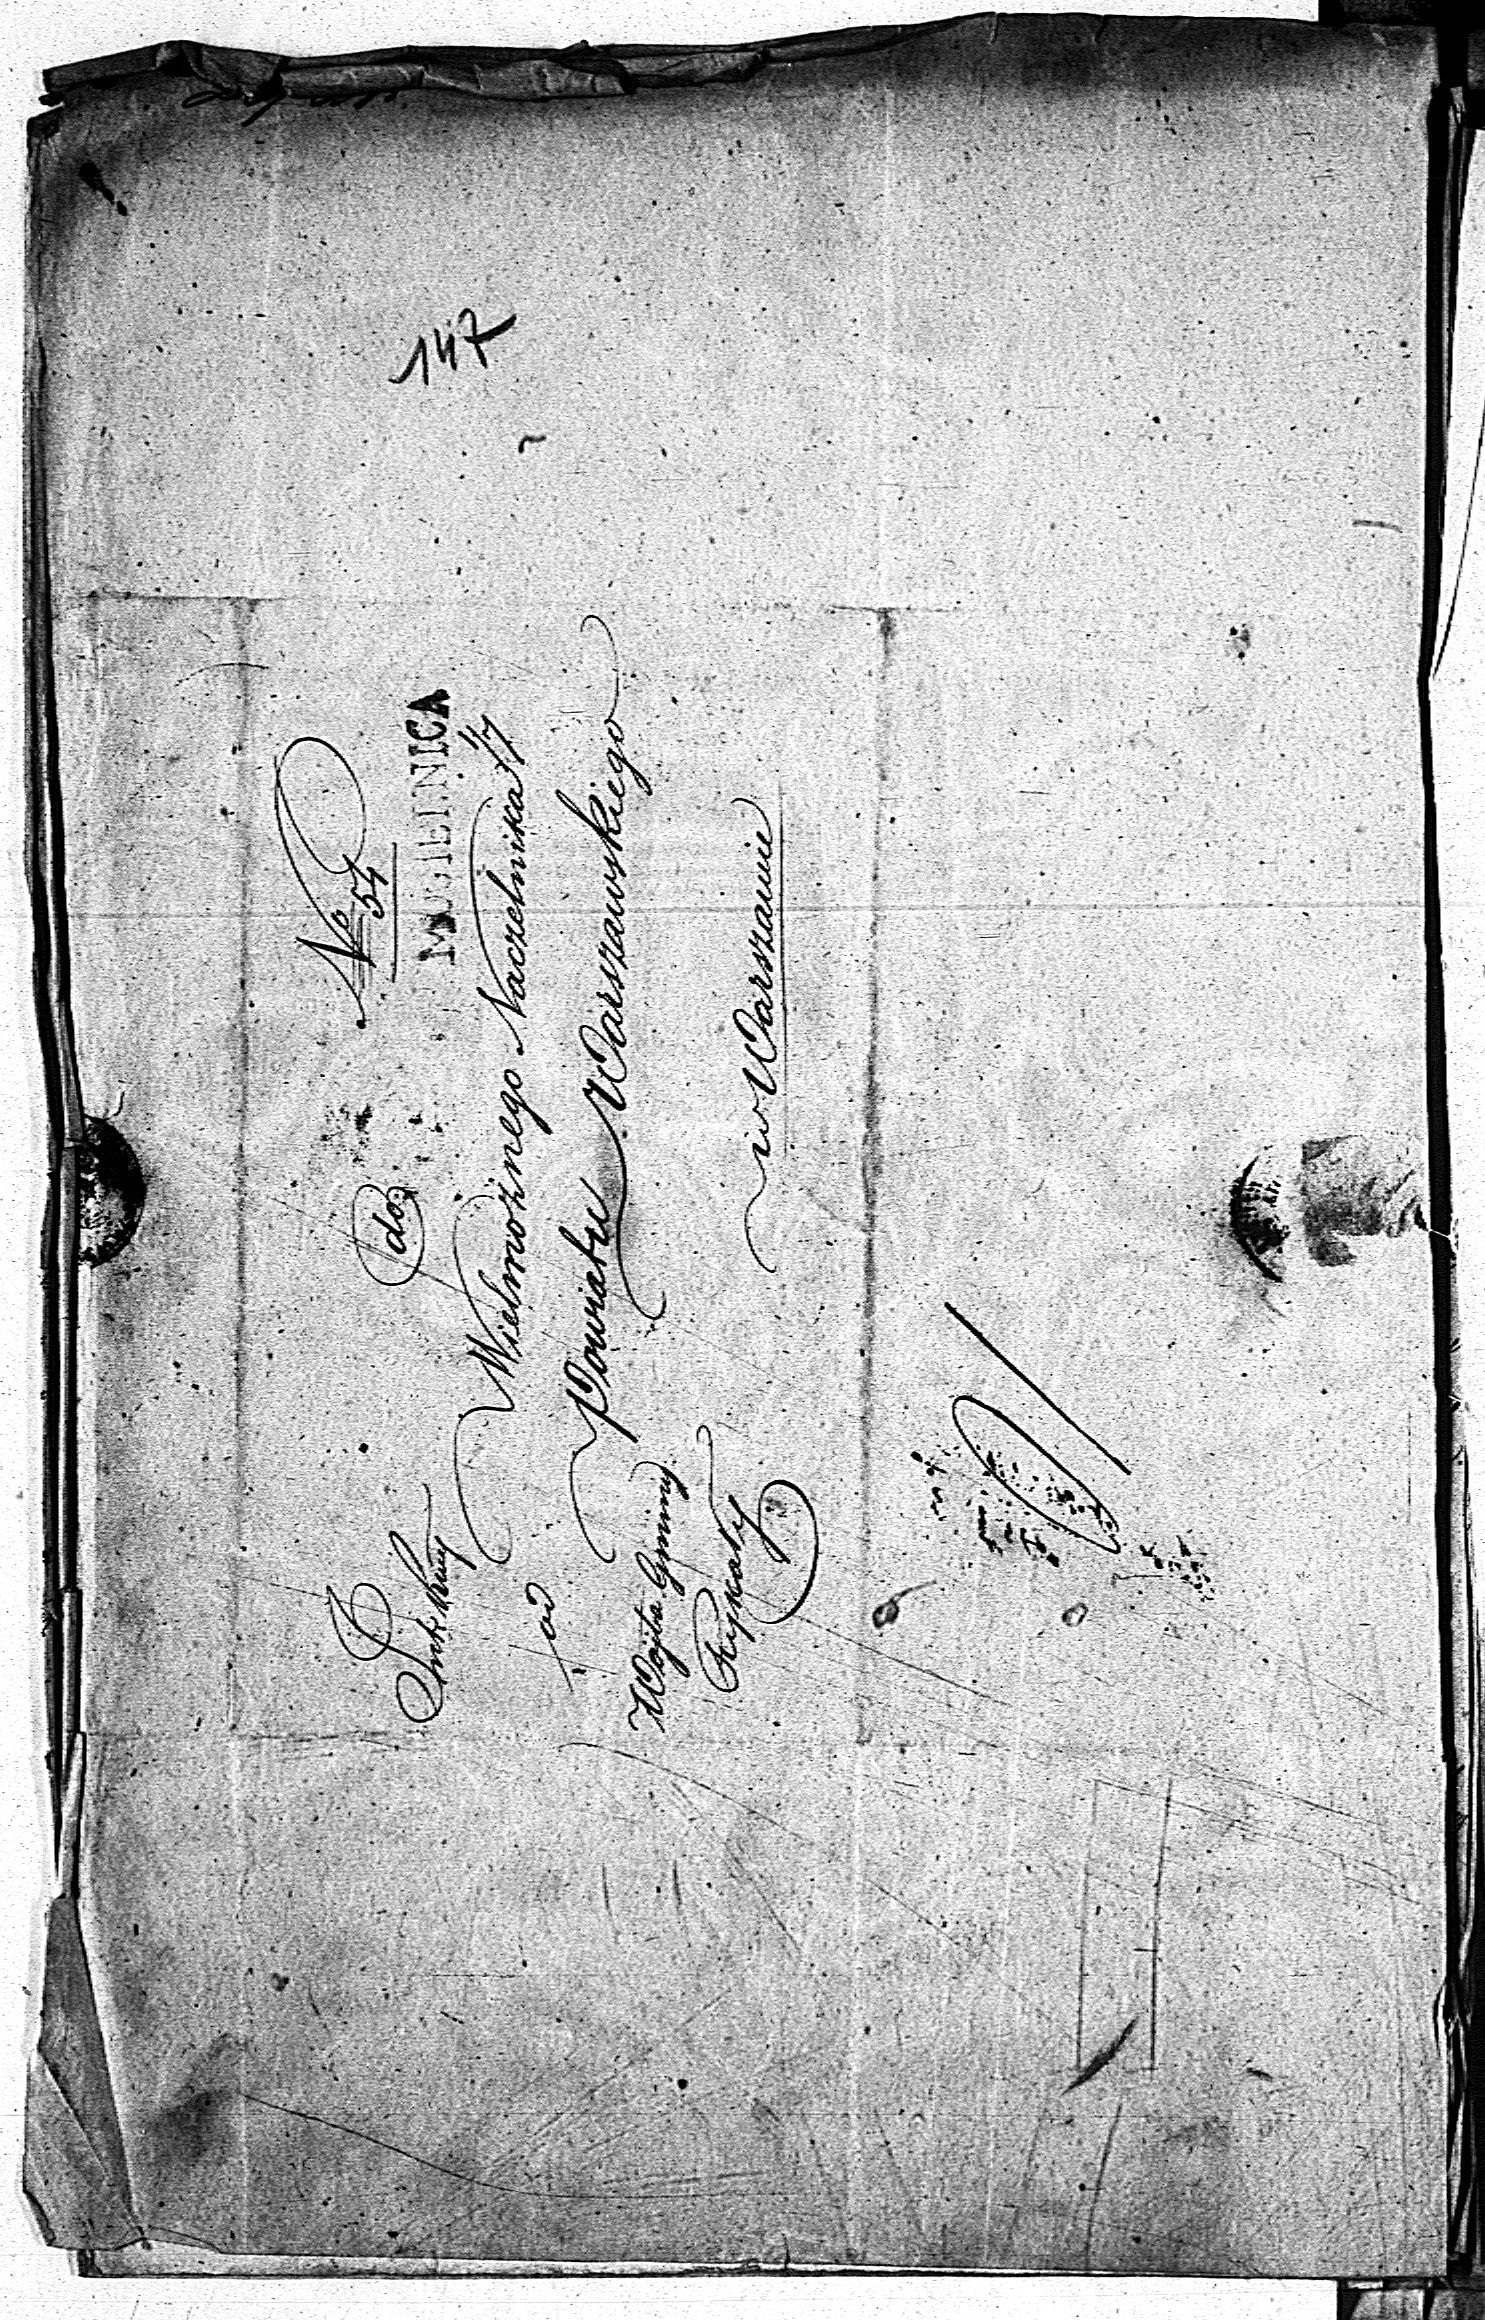 147
No 54
MOGIELNICA
do
Wielmożnego Naczelnika
Powiatu Warszawskiego
w Warszawie
od
Wójta Gminy
Rykały